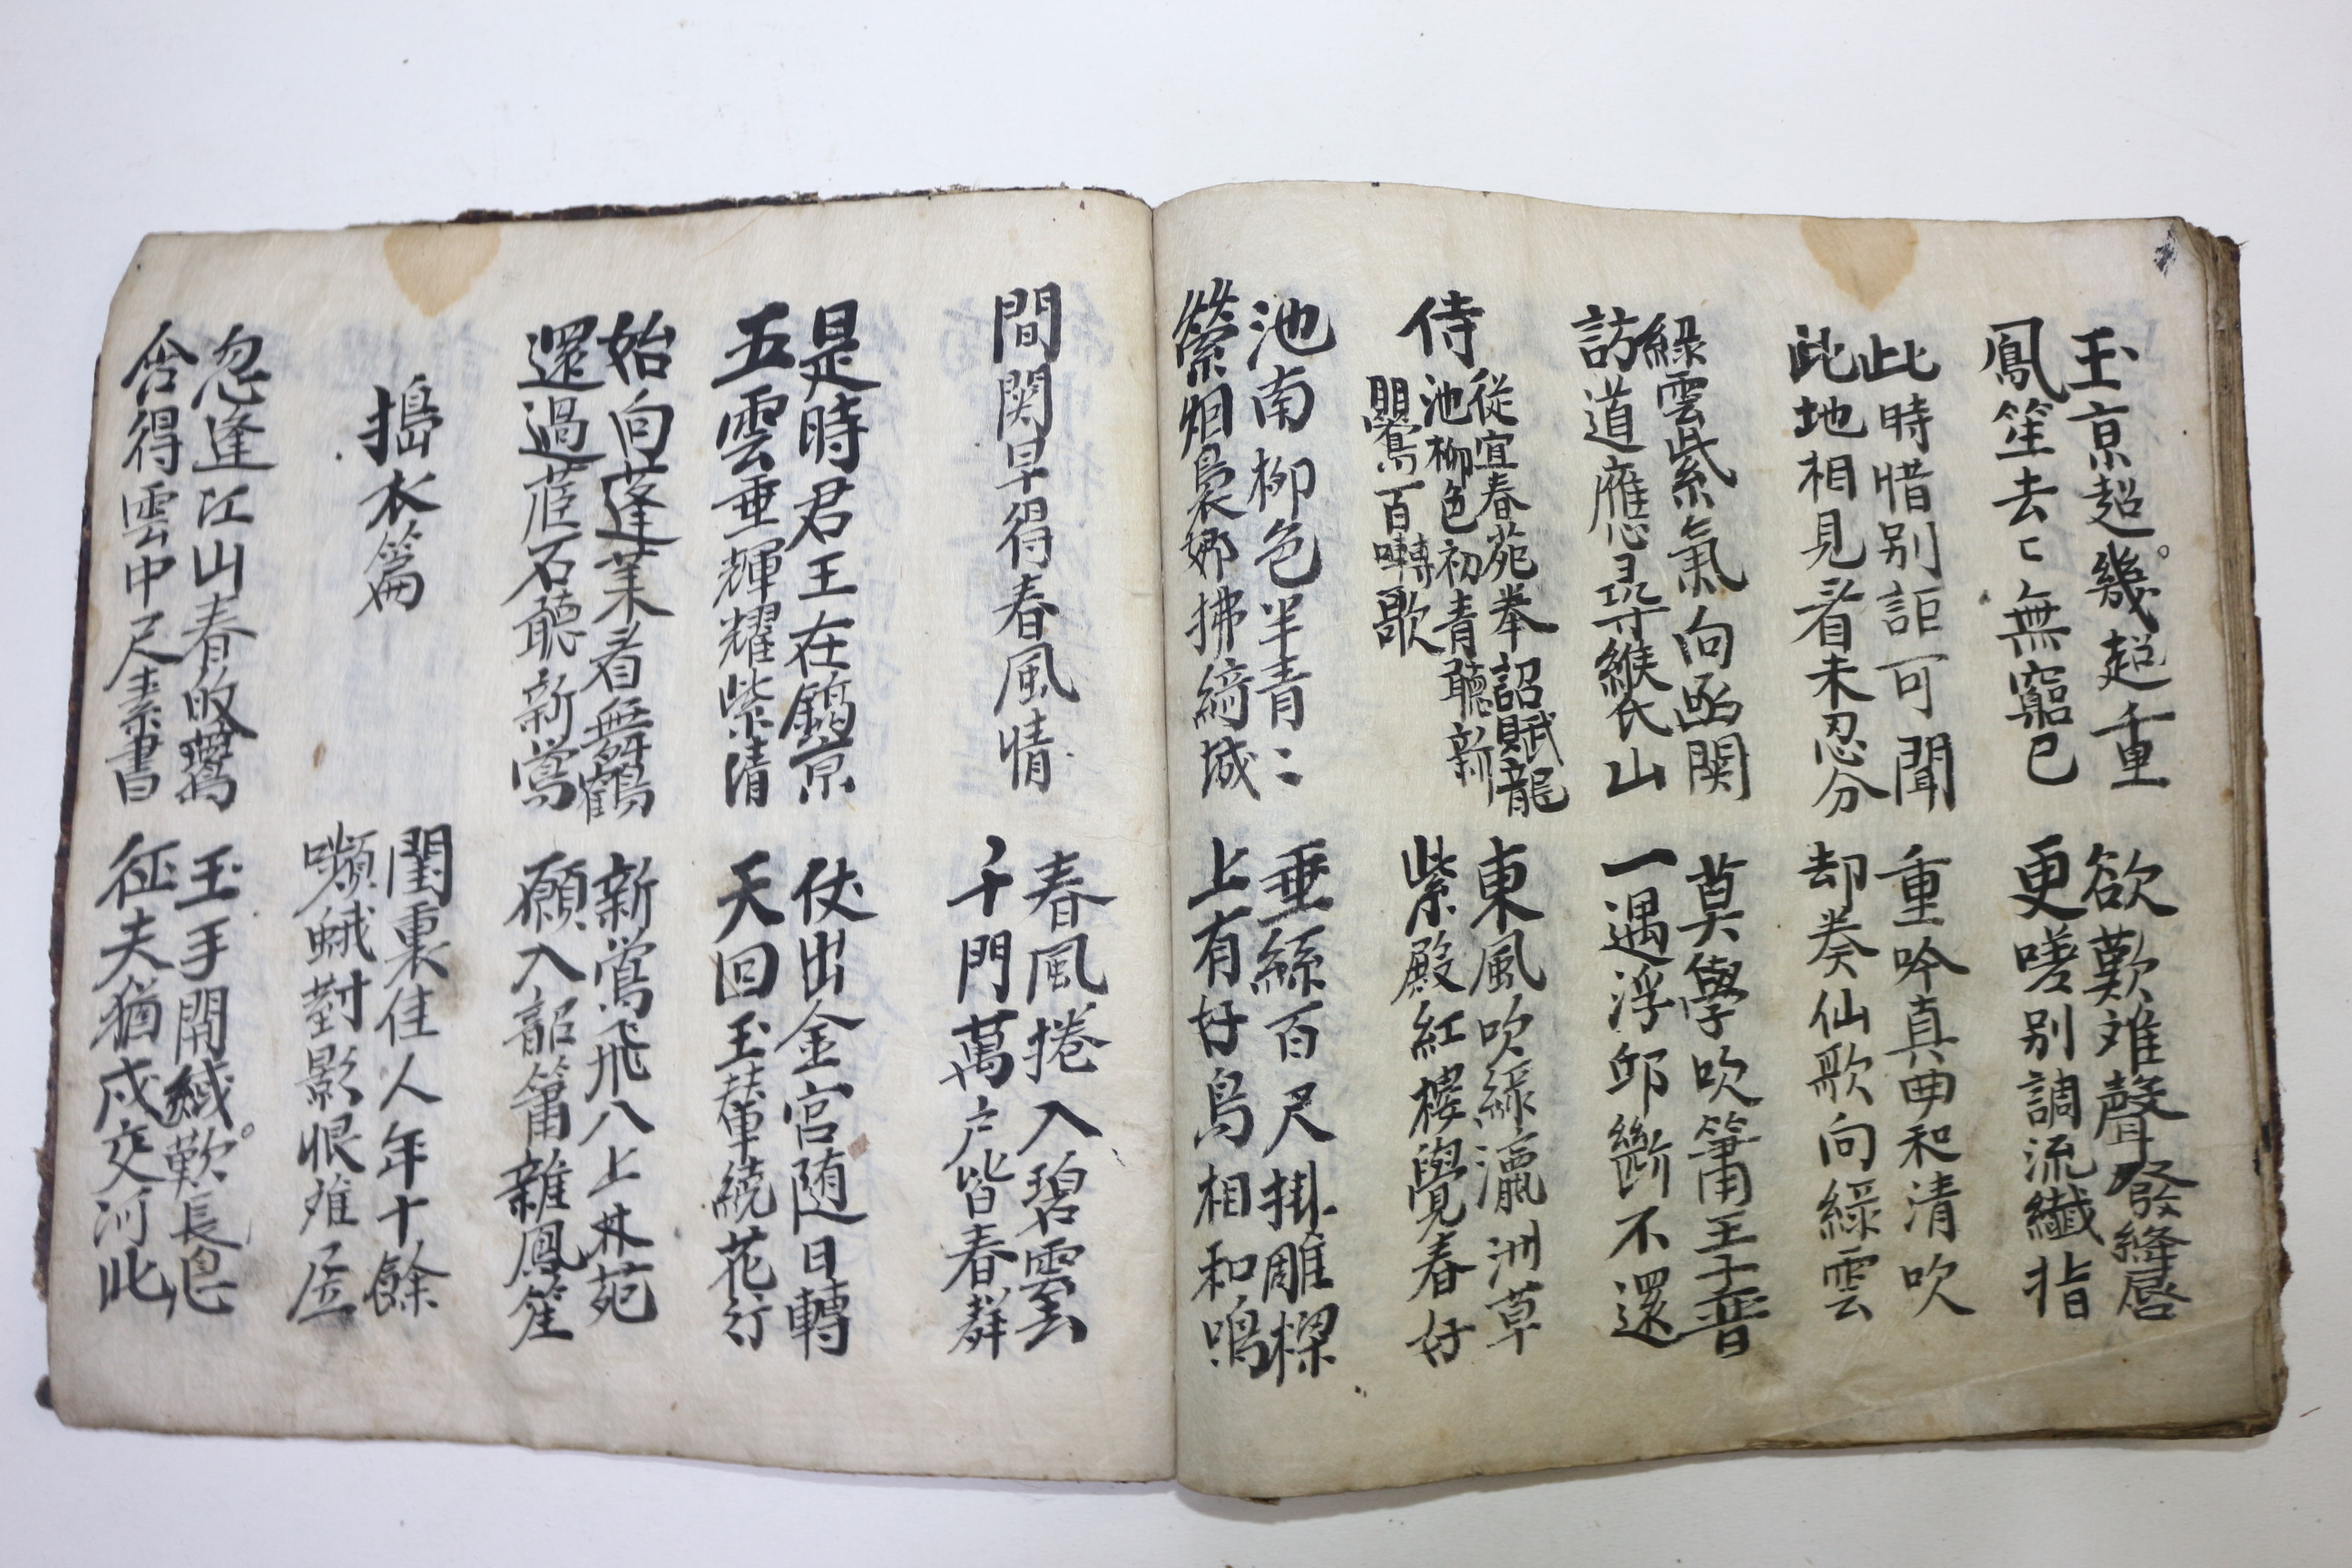 玉京超幾超重
鳳笙去〻無窮已
欲歎难聲發絳唇
更嗟别調流纖指
此時惜别詎可聞
此地相見看未忍分
重吟真曲和清吹
却奏仙歌向緑雲
緑雲紫氣向函関
訪道應尋緱氏山
莫學吹簫王子晋
一遇浮邱斷不還
侍從宜春苑奉詔賦龍
池柳色初青聽新
鸎百囀歌
東風吹緑瀛洲草
紫殿紅樓覺春好
池南柳色半青〻
縈烟裊娜拂綺城
垂絲百尺掛雕樑
上有好鳥相和鳴
間関早得春風情
春風捲入碧雲
千門萬户皆春聲
是時君王在鎬京
五雲垂輝耀紫清
仗出金宮随日轉
天回玉輦繞花行
始向蓬莱看舞鶴
還過茝石聽新鶯
新鶯飛入上林苑
願入韶簫雜鳳笙
搗衣篇
閨裏佳人年十餘
嚬蛾對影恨难居
忽逢江山春㱕鷰
含得雲中尺素書
玉手開緘歎長息
征夫猶戍交河北